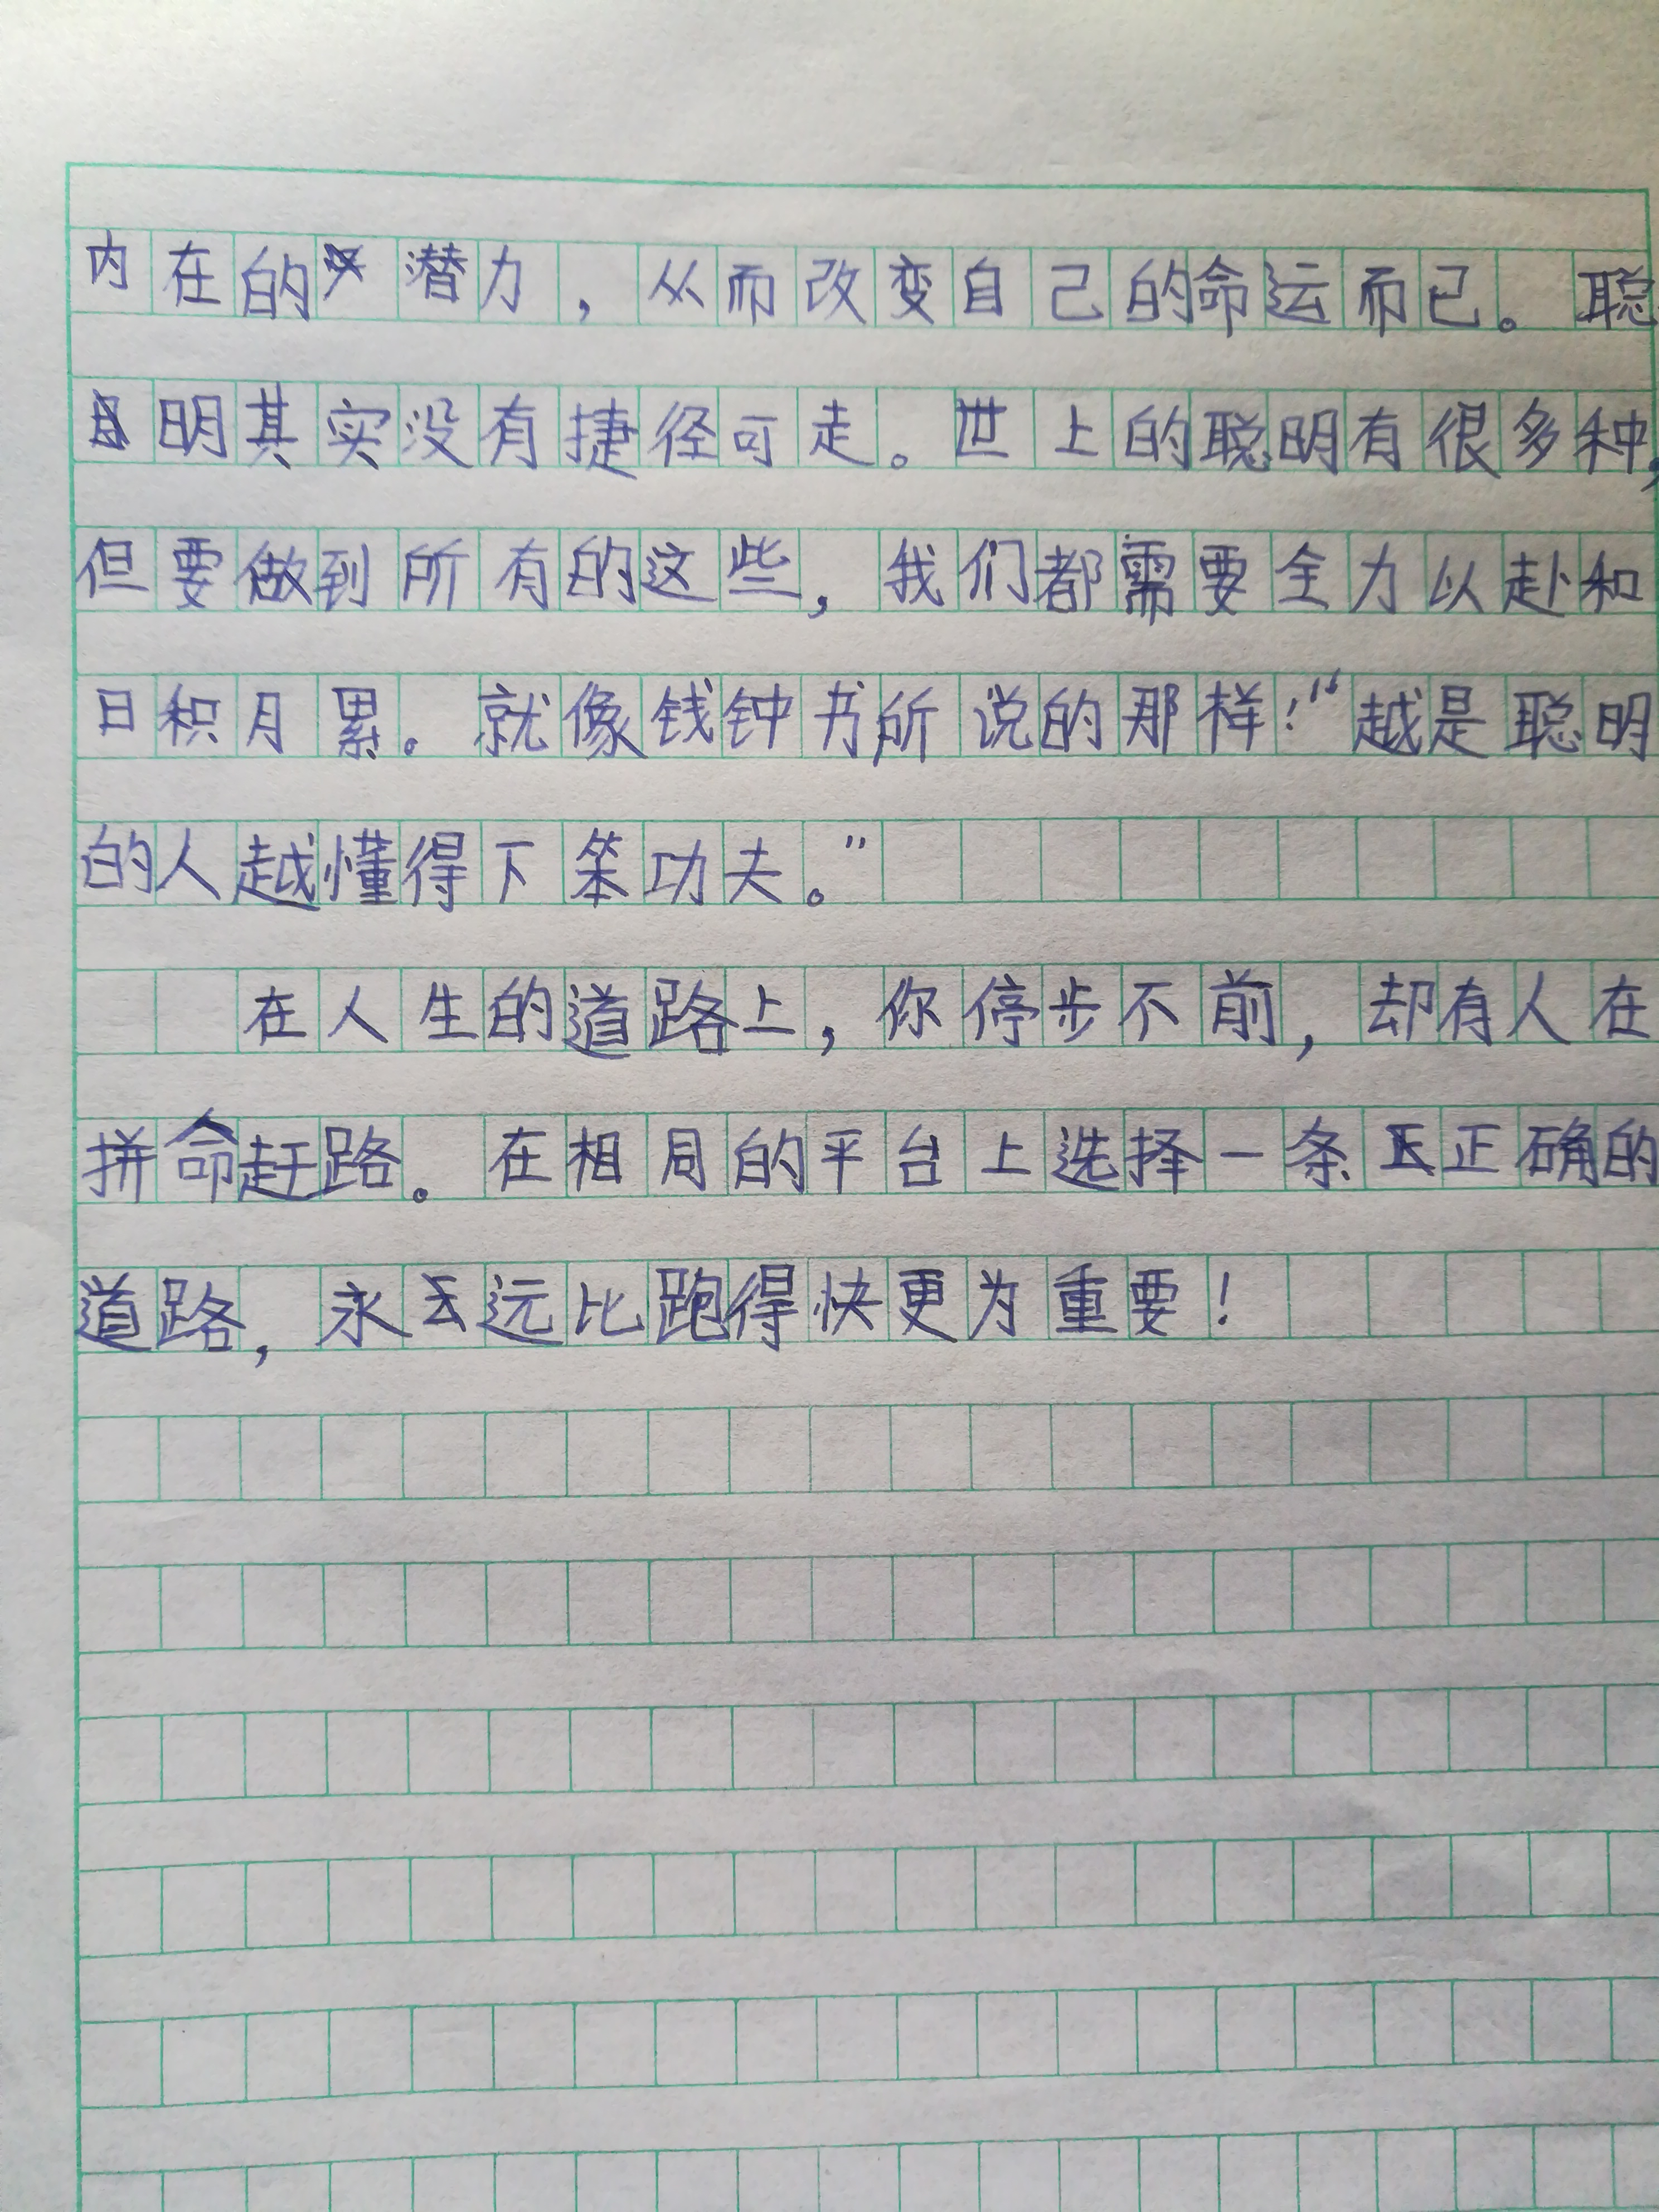 内在的潜力，从而改变自己的命运而已。聪
明其实没有捷径可走。世上的聪明有很多种，
但要做到所有的这些，我们都需要全力以赴和
日积月累。就像钱钟书所说的那样！“越是聪明
的人越懂得下笨功夫。”
在人生的道路上，你停步不前，却有人在
拼命赶路。在相同的平台上选择一条正确的
道路，永远比跑得快更为重要！